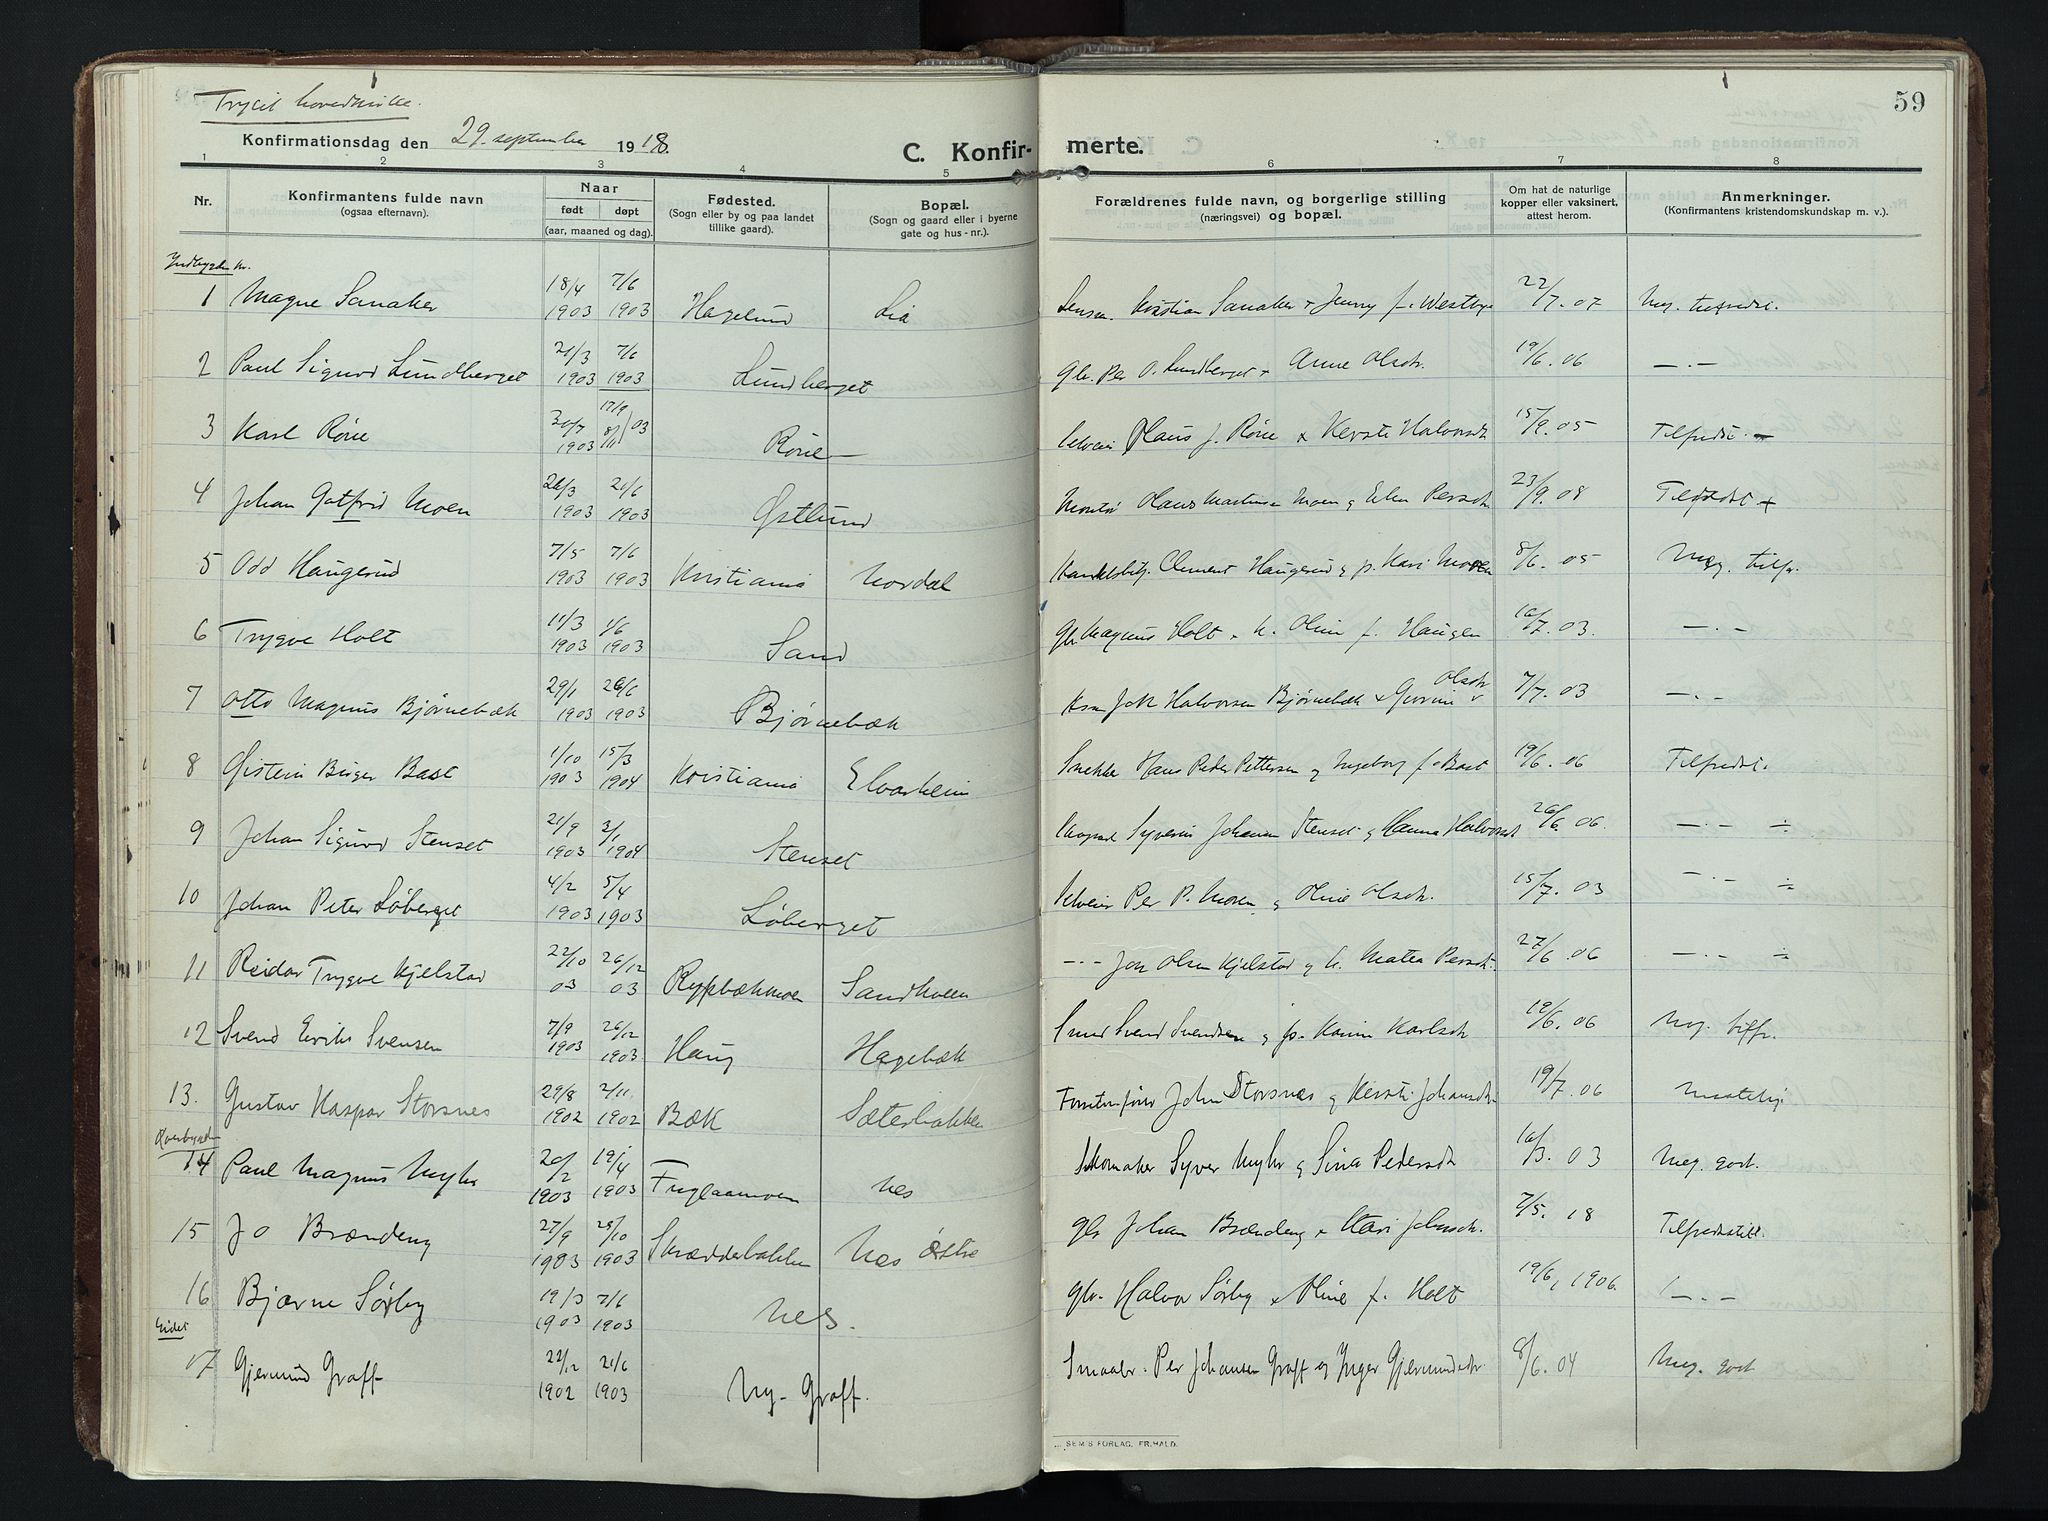 Trysil hovedkirke.
59
Konfirmationsdag den 29. september 1918.
C. Konfirmerte.
1 2 3 4 5 6 7 8
Nr.
Konfirmantens fulde navn
(ogsaa efternavn).
Naar
født døpt
(aar, maaned og dag).
Fødested.
(Sogn eller by og paa landet
tillike gaard).
Bopæl.
(Sogn og gaard eller i byerne
gate og hus-nr.).
Forældrenes fulde navn, og borgerlige stilling
(næringsvei) og bopæl.
Om hat de naturlige
kopper eller vaksinert,
attest herom.
Anmerkninger.
(Konfirmantens kristendomskundskap m. v.).
1 Magne Sanaker 18/4 1903 7/6 1903 Hagelund Lia Lensm. Kristian Sanaker + Jenny f. Westbye 22/7. 07 Meg. tilfredst.
2 Paul Sigurd Lundberget 21/3 1903 7/6 1903 Lundberget Gbr. Per O. Lundberget + Anne Olsdtr. 19/6. 06 —.—
3 Karl Røne 30/7 1903 17/9 8/11 03 Røne Selveier Olaus J. Røne + Kersti Halvorsdtr 15/9. 05 Tilfredst.
4 Johan Gotfrid Moen 26/3 1903 21/6 1903 Østlund Olaus Martinsen Moen g Persdtr 23/9. 08 Tilfredst +
5 Odd Haugerud 7/5 1903 7/6 1903 Kristiania Nordal Handelsbetj. Clement Haugerud g p. Kari Moren 8/6. 05 Meg. tilfr.
6 Trygve Holt 11/3 1903 1/6 1903 Sand Gbr. Magnus Holt + h. Oline f. Haugen 10/7. 03. —.—
7 Otto Magnus Bjørnebæk 29/1 1903 26/6 1903 Bjørnebæk Halvorsen Bjørnebæk + Gurine Olsdtr 7/7. 03 —.—
8 Øistein Birger Bast 1/10 1903 15/3 1904 Kristiania Elvarheim Snekker Hans Peder Pettersen og Ingeborg f. Bast 19/6. 06 Tilfredst.
9 Johan Sigurd Stenset 21/9 1903 3/1 1904 Stenset Syverin Johansen Stenset g Hanna Halvorsdtr 26/6. 06. —.— ÷
10 Johan Peter Løberget 4/2 1903 5/4 1903 Løberget Selveier Per P. Moren g Oline Olsdtr. 15/7. 03 —.— ÷
11 Reidar Trygve Kjelstad 22/10 03 26/12 03 Rypbækmoen Sandkveen —.— Jon Olsen Kjelstad g h. Matea Persdtr. 27/6. 06 —.— ÷
12 Svend Eriks Svensen 7/9 1903 26/12 1903 Haug Hagebæk Smed Svend Svendsen g p. Karin Karlsdtr 19/6. 06 Meg. tilfr.
13. Gustav Kaspar Storsnes 29/8 1902 2/11 1902 Bæk Sæterbakken John Storsnes g Kersti Johansdtr 19/7. 06 maatelig
14 Paul Magnus Nyhr 20/2 1903 19/4 1903 Fuglaamoen Nes Skomaker Syver Nyhr g Sina Pedersdtr 10/3. 03 Meg. godt.
15 Jo Brændeng 27/9 1903 25/10 1903 Skrædderbakken Nes Østre Gbr Johan Brændeng + Kari Johnsdtr. 2/5. 18 Tilfredsstill.
16 Bjarne Sørby 19/3 1903 7/6 1903 Nes. Gbr. Halvor Sørby + Oline f. Holt 19/6, 1906. —.—
Eidet
17 Gjermund Graff 22/12 1902 21/6 1903 Ny-Graff. Smaabr. Per Johansen Graff og Inger Gjermundsdtr. 8/6. 04 Meg. godt
SEM'S FORLAG, FR.HALD.